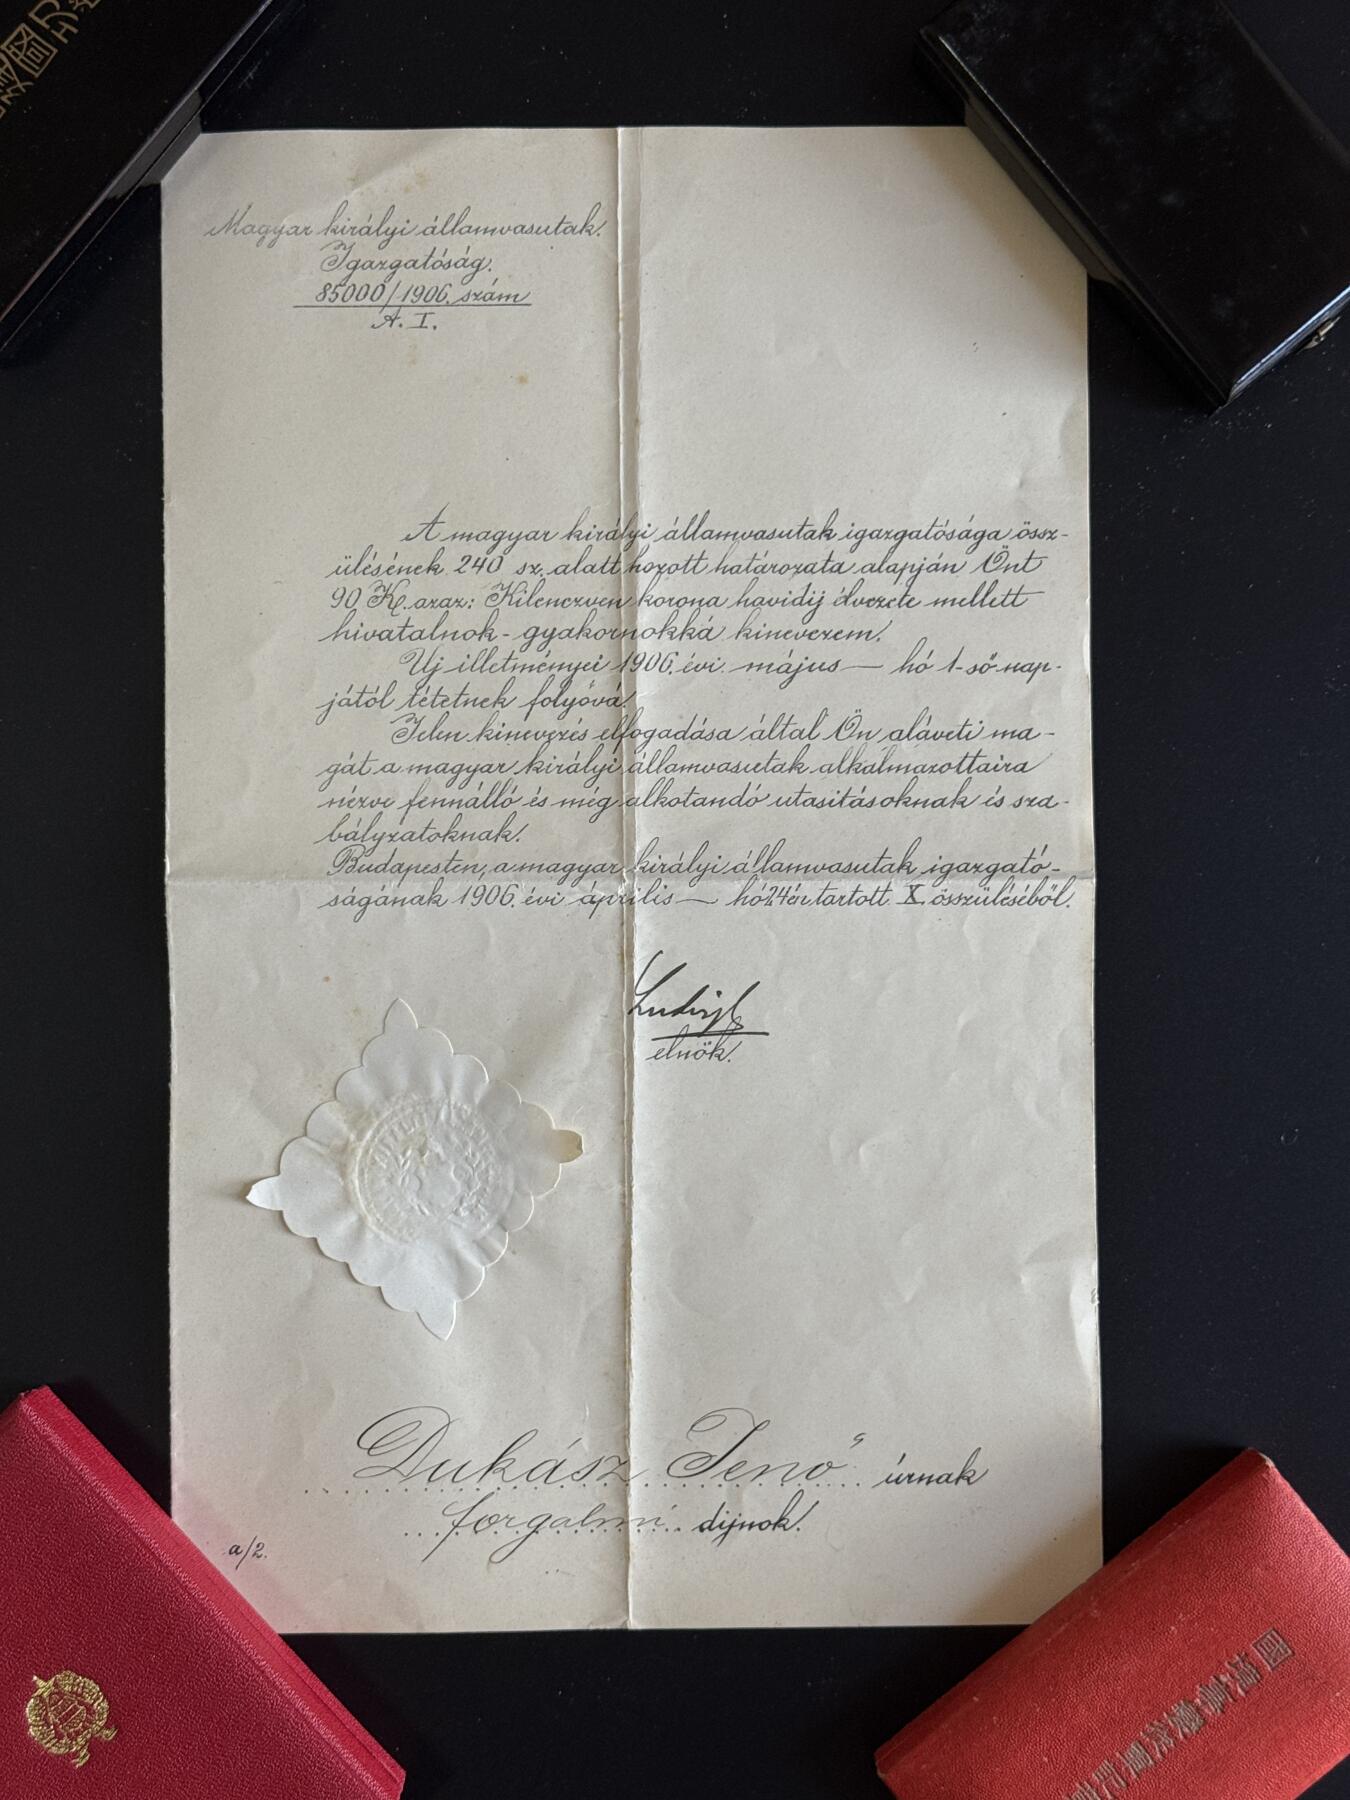 Magyar királyi államvasutak.
Igazgatóság.
85000/1906. szám
A. I.
A magyar királyi államvasutak igazgatósága össz-
ülésének 240 sz. alatt hozott határozata alapján Önt
90 K. azaz: Kilenczven korona havidíj élvezete mellett
hivatalnok-gyakornokká kinevezem.
Uj illetményei 1906. évi május — hó 1-ső nap-
jától tétetnek folyóvá.
Jelen kinevezés elfogadása által Ön aláveti ma-
gát a magyar királyi államvasutak alkalmazottaira
nézve fennálló és még alkotandó utasitásoknak és sza-
bályzatoknak.
Budapesten, a magyar királyi államvasutak igazgató-
ságának 1906. évi április — hó 24én tartott X. összüléséből.
Ludvigh
elnök.
Dukász Jenő úrnak
forgalmi dijnok.
a/2.